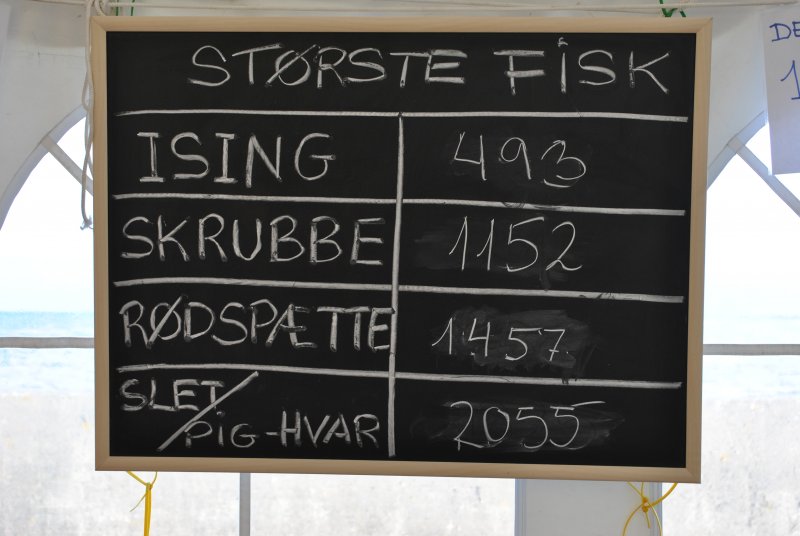 STØRSTE FISK
ISING 493
SKRUBBE 1152
RØDSPÆTTE 1457
SLET/PIG-HVAR 2055
DE
1